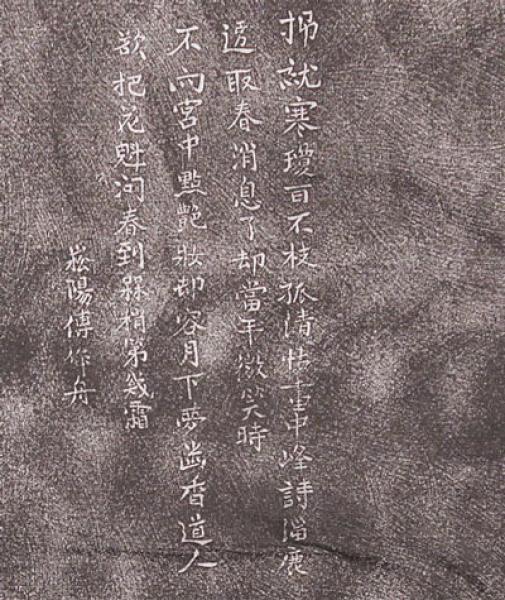 掃就寒瓊百不枝孤清恰畫中峰詩展
取春消息了却當年微笑時
不向宮中點艷妝却容月下夢幽香道人
欲把花魁問春到槑梢第幾霜
崧陽傅作舟